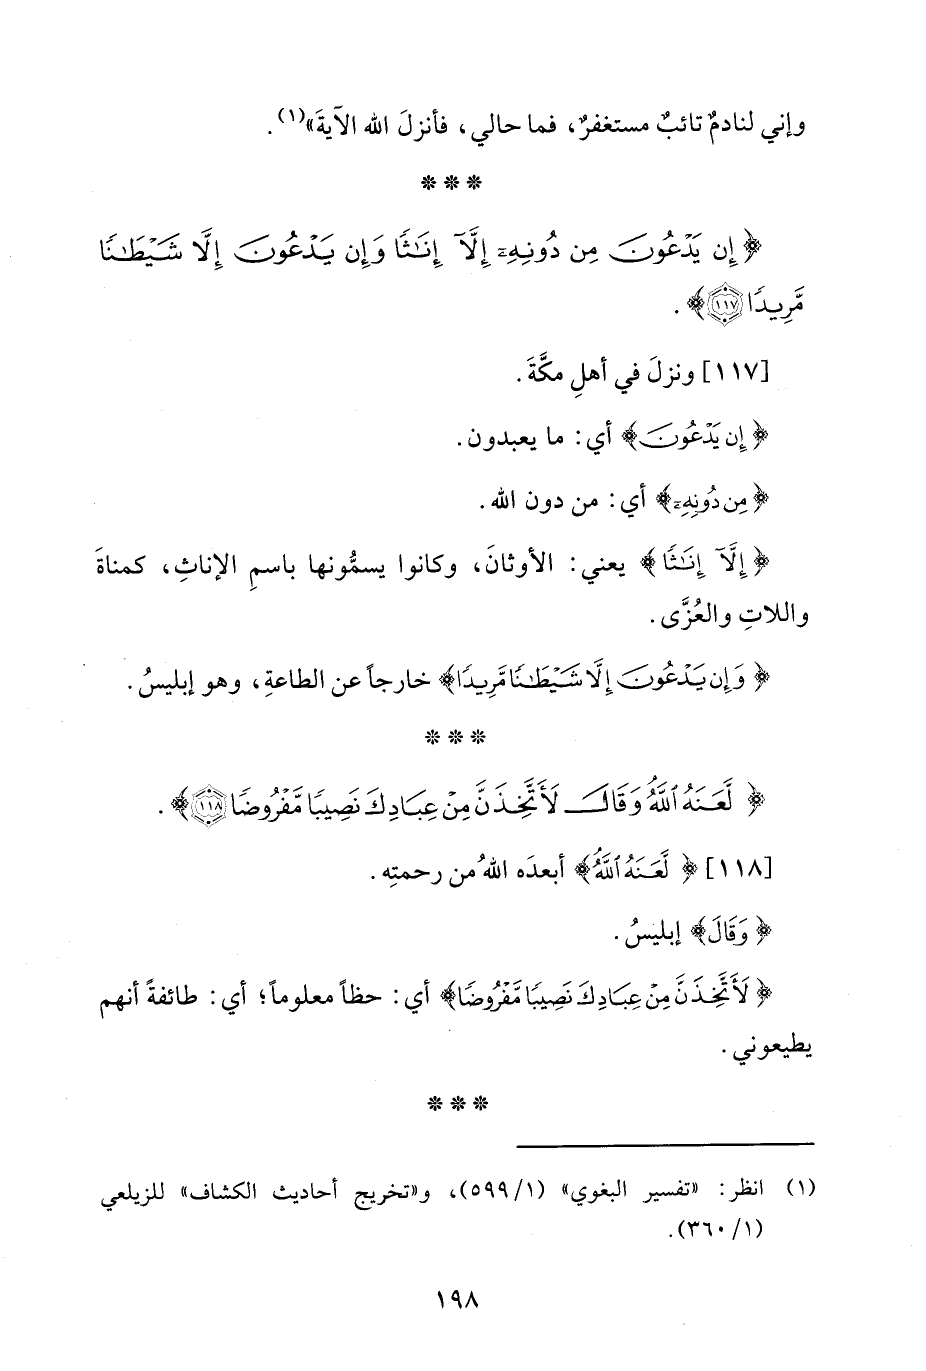 وإني لنادمٌ تائبٌ مستغفرٌ، فما حالي، فأنزلَ الله الآيةَ»(١).
* * *
﴿إِن يَدْعُونَ مِن دُونِهِۦٓ إِلَّآ إِنَٰثًا وَإِن يَدْعُونَ إِلَّا شَيْطَٰنًا
مَّرِيدًا ١١٧﴾.
[١١٧] ونزلَ في أهلِ مكَّةَ.
﴿إِن يَدْعُونَ﴾ أي: ما يعبدون.
﴿مِن دُونِهِۦٓ﴾ أي: من دون الله.
﴿إِلَّآ إِنَٰثًا﴾ يعني: الأوثانَ، وكانوا يسمُّونها باسمِ الإناثِ، كمناةَ
واللاتِ والعُزَّى.
﴿وَإِن يَدْعُونَ إِلَّا شَيْطَٰنًا مَّرِيدًا﴾ خارجاً عن الطاعةِ، وهو إبليسُ.
* * *
﴿لَّعَنَهُ ٱللَّهُ وَقَالَ لَأَتَّخِذَنَّ مِنْ عِبَادِكَ نَصِيبًا مَّفْرُوضًا ١١٨﴾.
[١١٨] ﴿لَّعَنَهُ ٱللَّهُ﴾ أبعدَه اللهُ من رحمتِه.
﴿وَقَالَ﴾ إبليسُ.
﴿لَأَتَّخِذَنَّ مِنْ عِبَادِكَ نَصِيبًا مَّفْرُوضًا﴾ أي: حظاً معلوماً؛ أي: طائفةً أنهم
يطيعوني.
* * *
(١) انظر: «تفسير البغوي» (١/ ٥٩٩)، و«تخريج أحاديث الكشاف» للزيلعي
(١/ ٣٦٠).
١٩٨